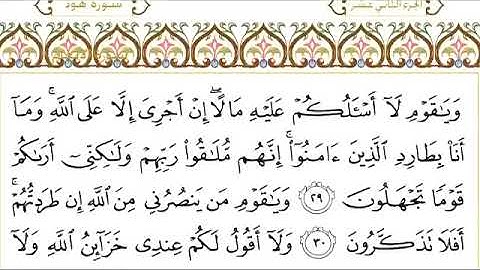 الجزء الثاني عشر
سورة هود
وَيَٰقَوْمِ لَآ أَسْـَٔلُكُمْ عَلَيْهِ مَالًا ۖ إِنْ أَجْرِىَ إِلَّا عَلَى ٱللَّهِ ۚ وَمَآ
أَنَا۠ بِطَارِدِ ٱلَّذِينَ ءَامَنُوٓا۟ ۚ إِنَّهُم مُّلَٰقُوا۟ رَبِّهِمْ وَلَٰكِنِّىٓ أَرَىٰكُمْ
قَوْمًا تَجْهَلُونَ ٢٩ وَيَٰقَوْمِ مَن يَنصُرُنِى مِنَ ٱللَّهِ إِن طَرَدتُّهُمْ ۚ
أَفَلَا تَذَكَّرُونَ ٣٠ وَلَآ أَقُولُ لَكُمْ عِندِى خَزَآئِنُ ٱللَّهِ وَلَآ